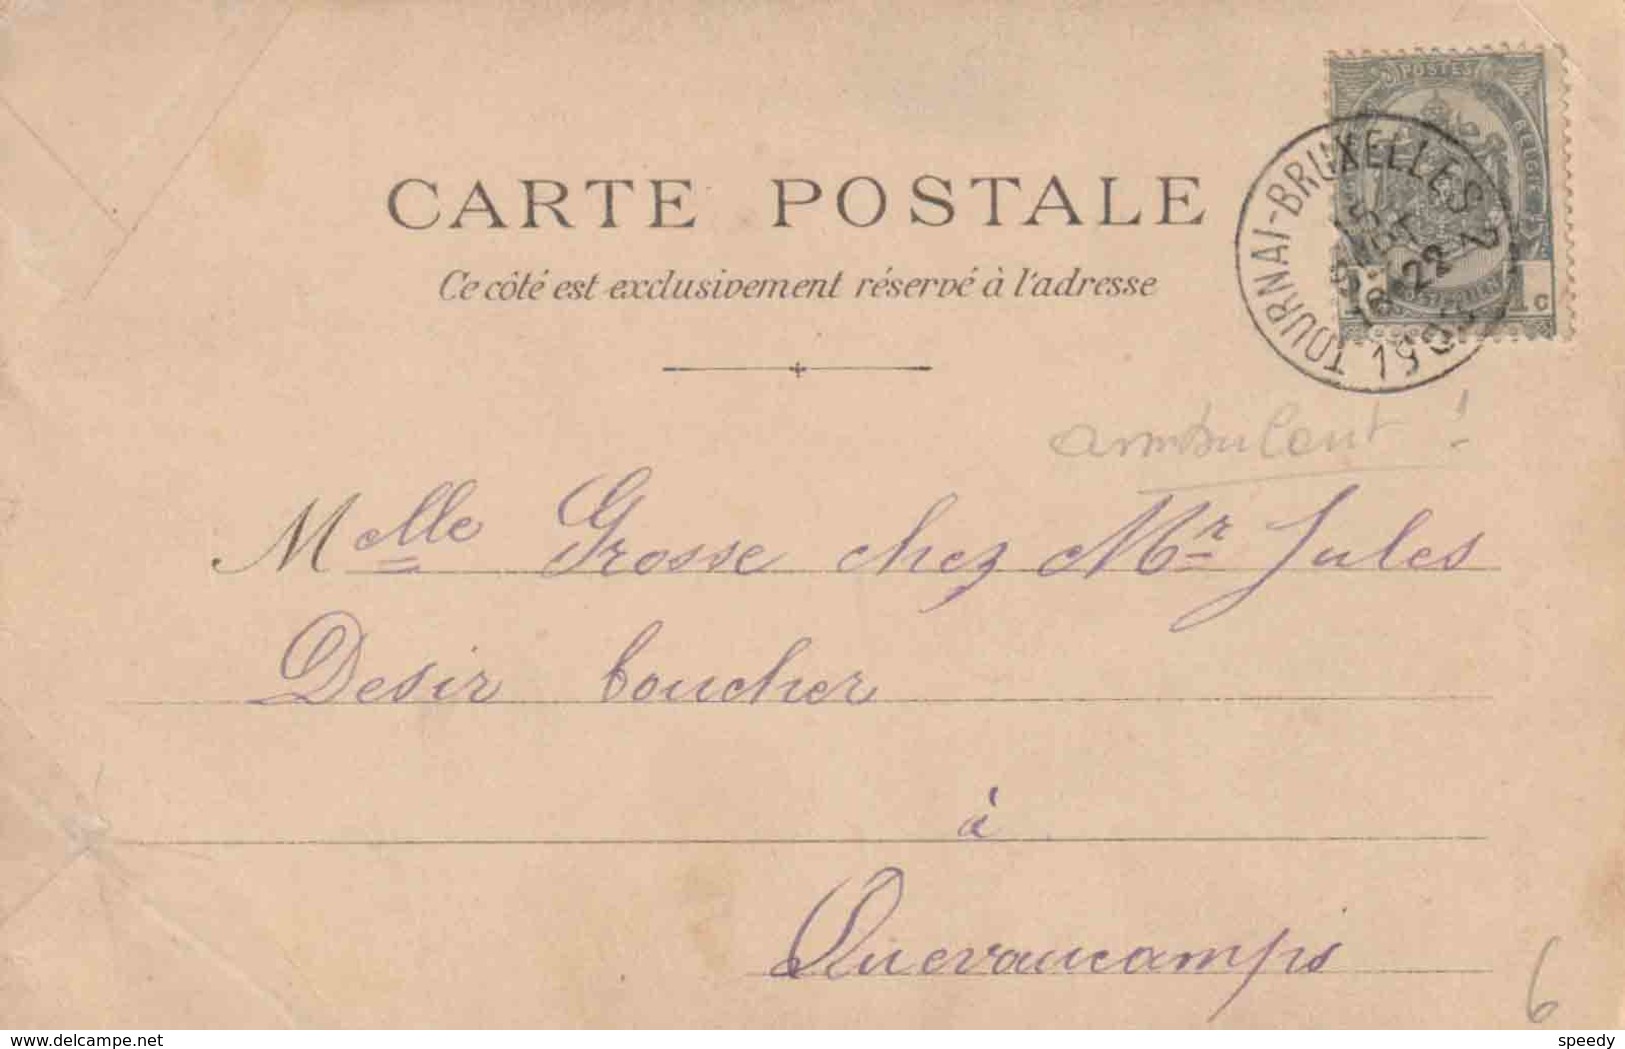 POSTES
BELGIQUE
TOURNAI-BRUXELLES 2
15
22
1903
1c
CARTE POSTALE
Ce côté est exclusivement réservé à l'adresse
ambulant !
Melle Grosse chez Mr Jules
Desir boucher
à
Quevaucamps
6
www.delcampe.net
speedy